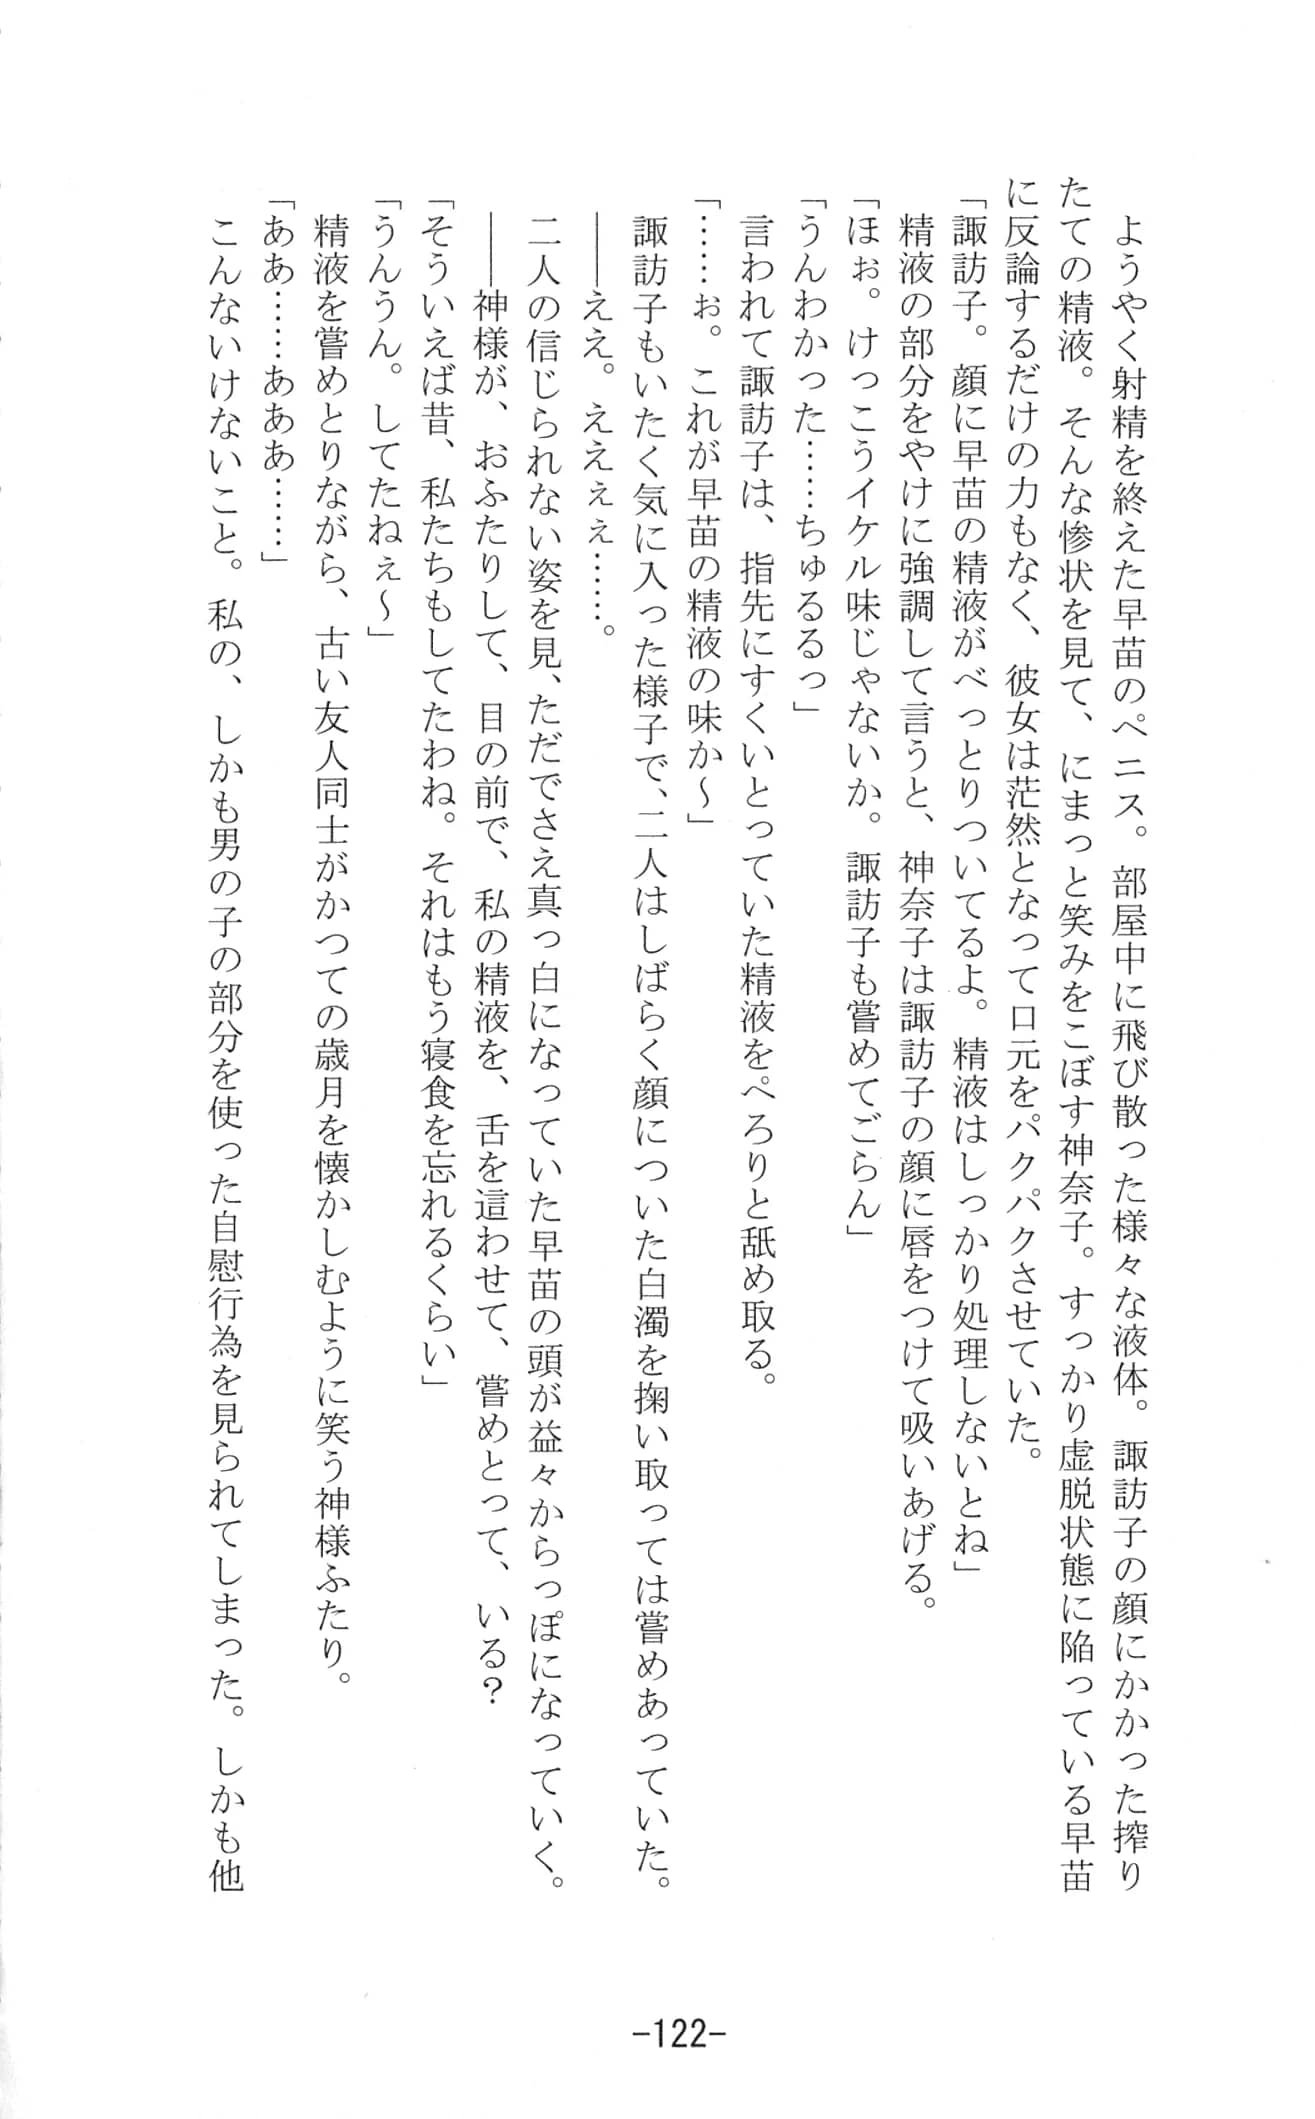 ようやく射精を終えた早苗のペニス。部屋中に飛び散った様々な液体。諏訪子の顔にかかった搾り
たての精液。そんな惨状を見て、にまっと笑みをこぼす神奈子。すっかり虚脱状態に陥っている早苗
に反論するだけの力もなく、彼女は茫然となって口元をパクパクさせていた。
「諏訪子。顔に早苗の精液がべっとりついてるよ。精液はしっかり処理しないとね」
精液の部分をやけに強調して言うと、神奈子は諏訪子の顔に唇をつけて吸いあげる。
「ほぉ。けっこうイケル味じゃないか。諏訪子も嘗めてごらん」
「うんわかった……ちゅるるっ」
言われて諏訪子は、指先にすくいとっていた精液をぺろりと舐め取る。
「……ぉ。これが早苗の精液の味か～」
諏訪子もいたく気に入った様子で、二人はしばらく顔についた白濁を掬い取っては嘗めあっていた。
――ええ。ええぇぇ……。
二人の信じられない姿を見、ただでさえ真っ白になっていた早苗の頭が益々からっぽになっていく。
――神様が、おふたりして、目の前で、私の精液を、舌を這わせて、嘗めとって、いる？
「そういえば昔、私たちもしてたわね。それはもう寝食を忘れるくらい」
「うんうん。してたねぇ～」
精液を嘗めとりながら、古い友人同士がかつての歳月を懐かしむように笑う神様ふたり。
「ああ……あああ……」
こんないけないこと。私の、しかも男の子の部分を使った自慰行為を見られてしまった。しかも他
-122-